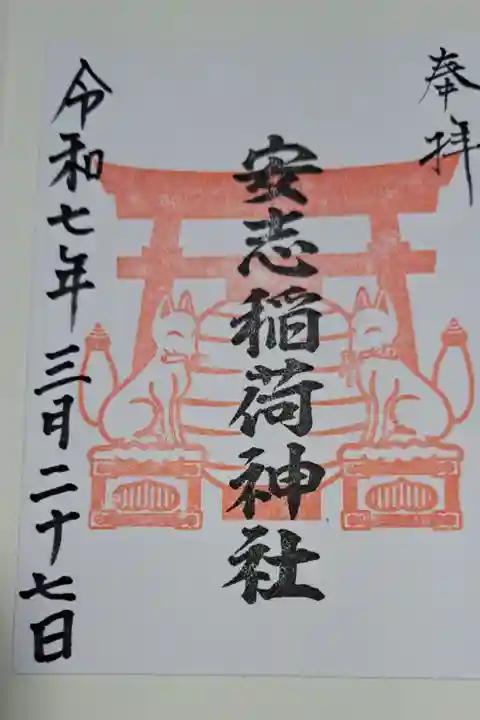 奉拝
安志稲荷神社
令和七年三日二十七日